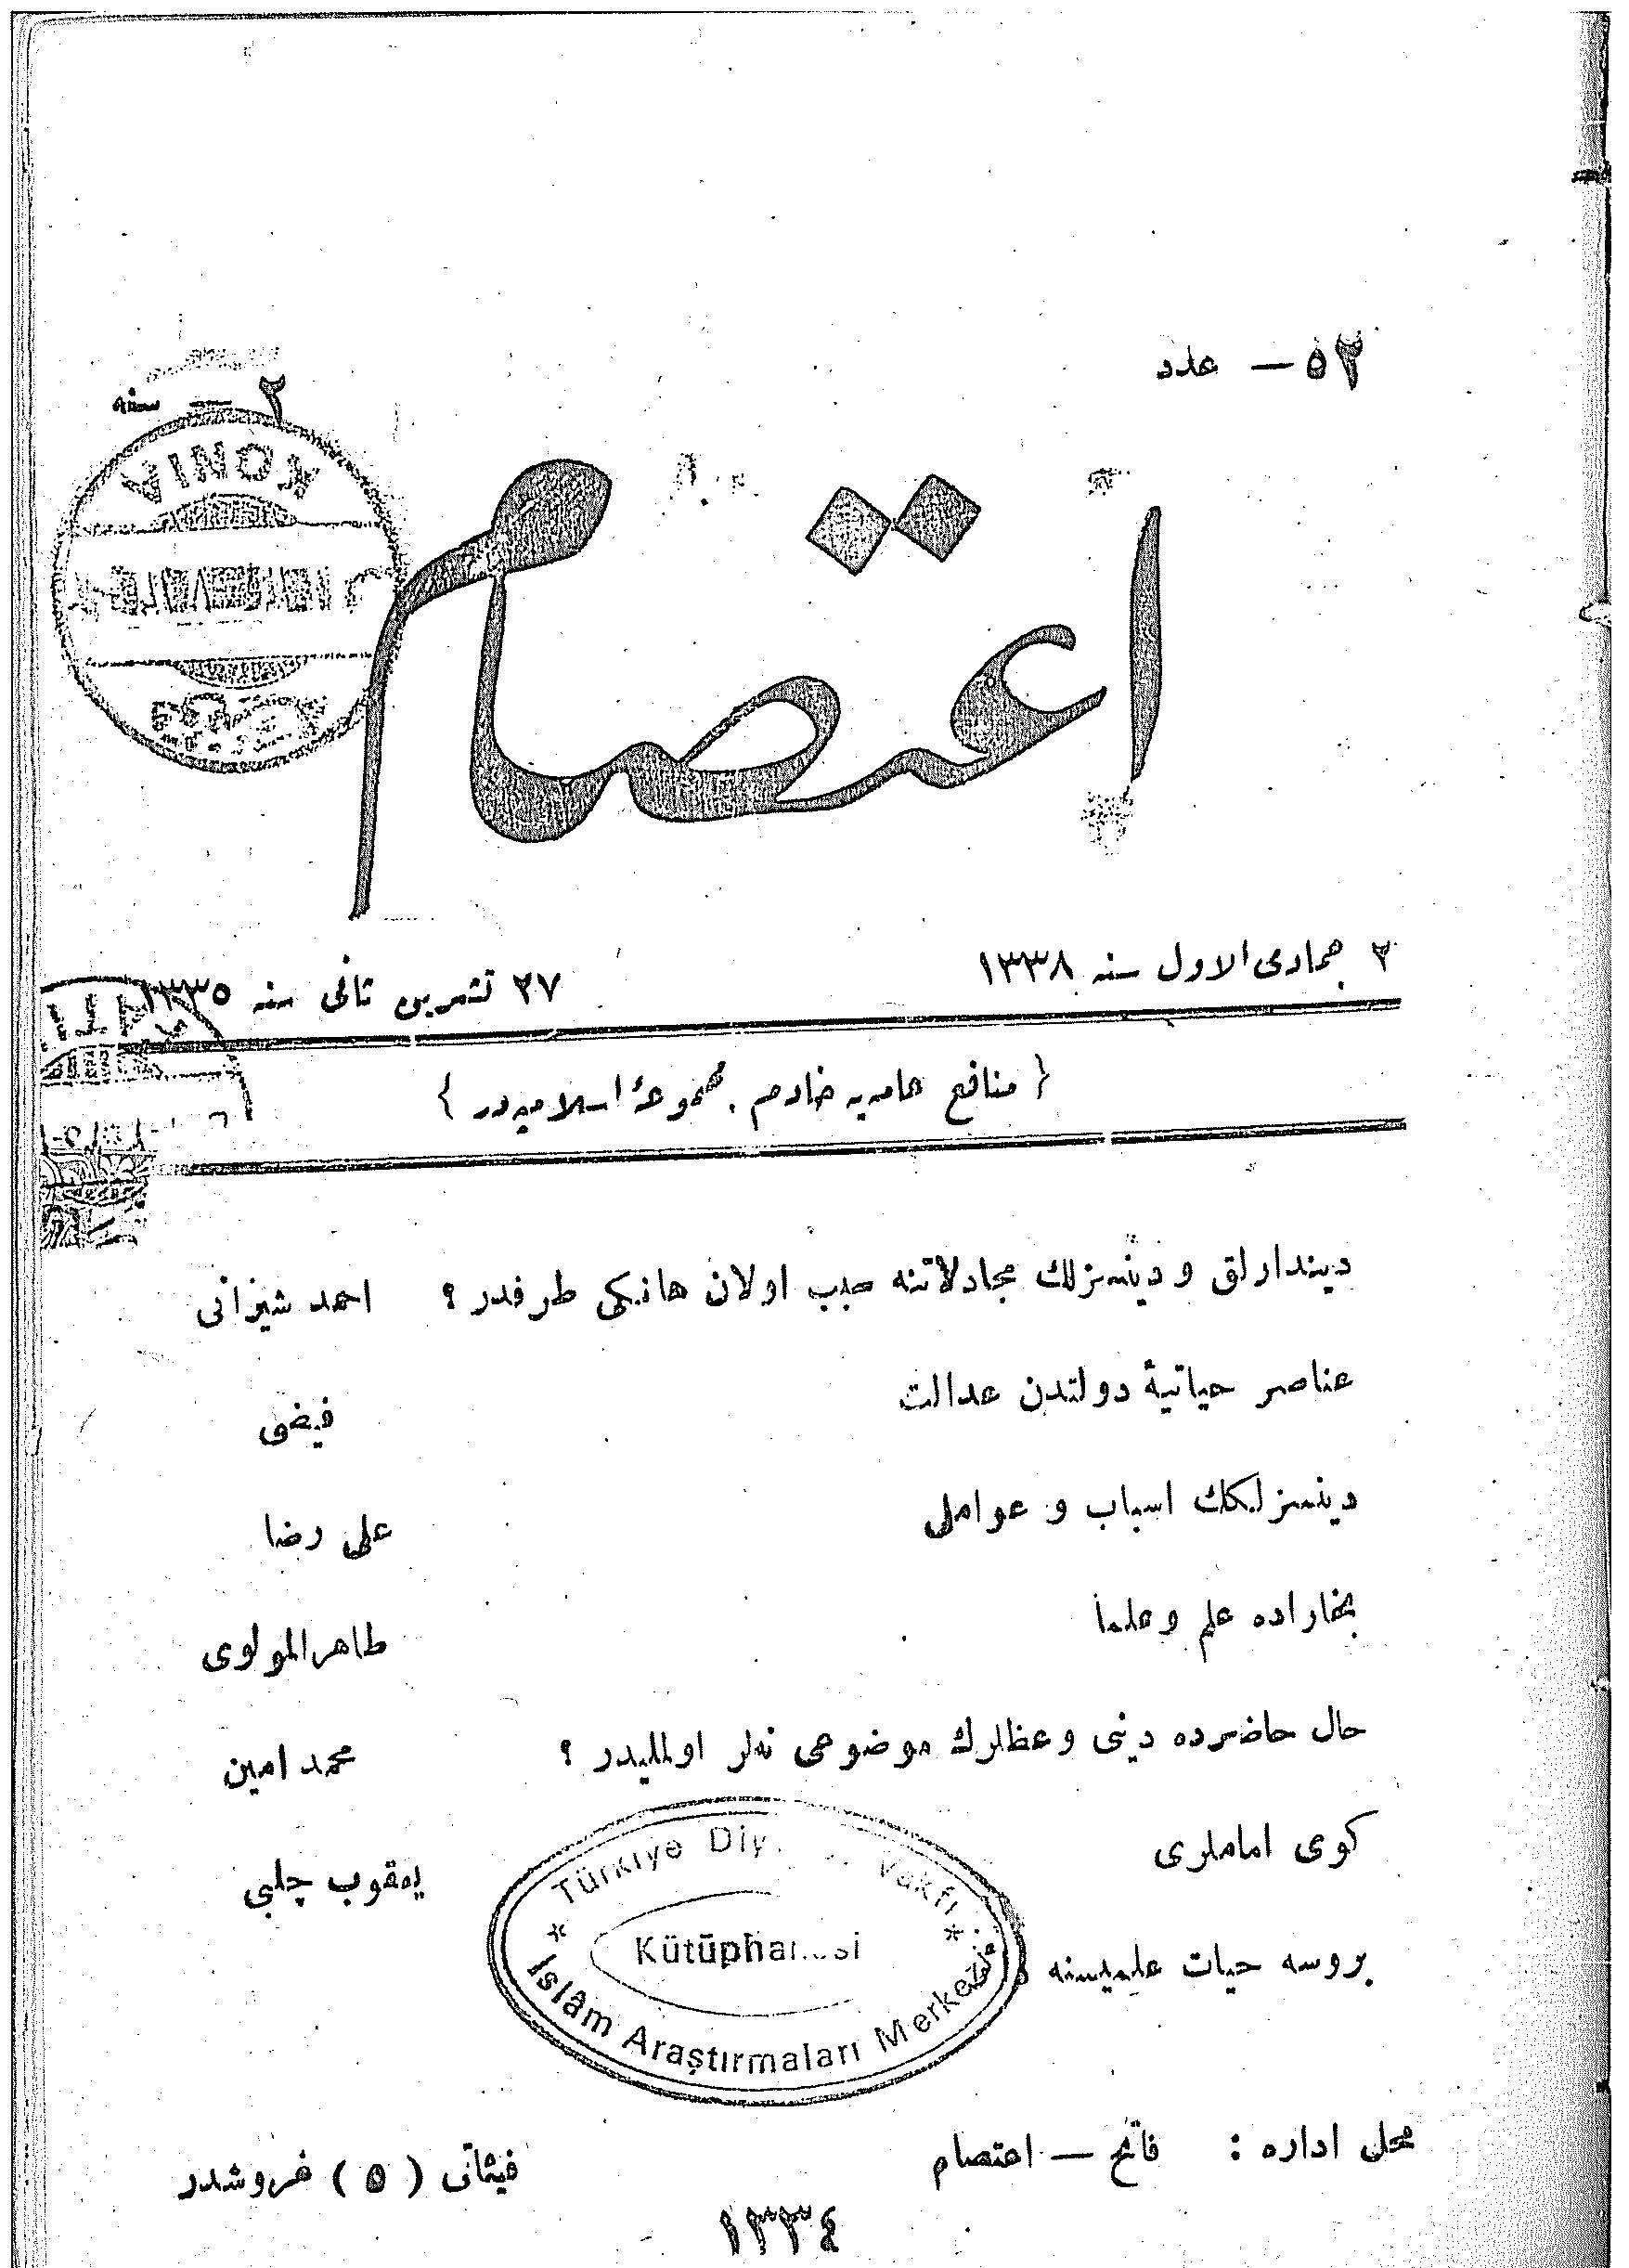 ٥٢ — عدد
٢ — سنه
KONIA
اعتصام
٢ جمادى الاول سنه ١٣٣٨
٢٧ تشرين ثانى سنه ١٣٣٥
{ منافع عامه‌يه خادم مجموعهٔ اسلاميه‌در }
ديندارلق و دينسزلك مجادلاتنه سبب اولان هانكى طرفدر ؟ احمد شيرانى
عناصر حياتيهٔ دولتدن عدالت فيضى
دينسزلكك اسباب و عواملى على رضا
بخاراده علم و علما طاهر المولوى
حال حاضرده دينى وعظلرك موضوعى نه‌لر اولمليدر ؟ محمد امين
كوى اماملرى يعقوب چلبى
بروسه حيات علميسنه
Türkiye Diy. Vakfı
Kütüphanesi
İslâm Araştırmaları Merkezi
محل اداره : فاتح — اعتصام
فيئاتى ( ٥ ) غروشدر
١٣٣٤